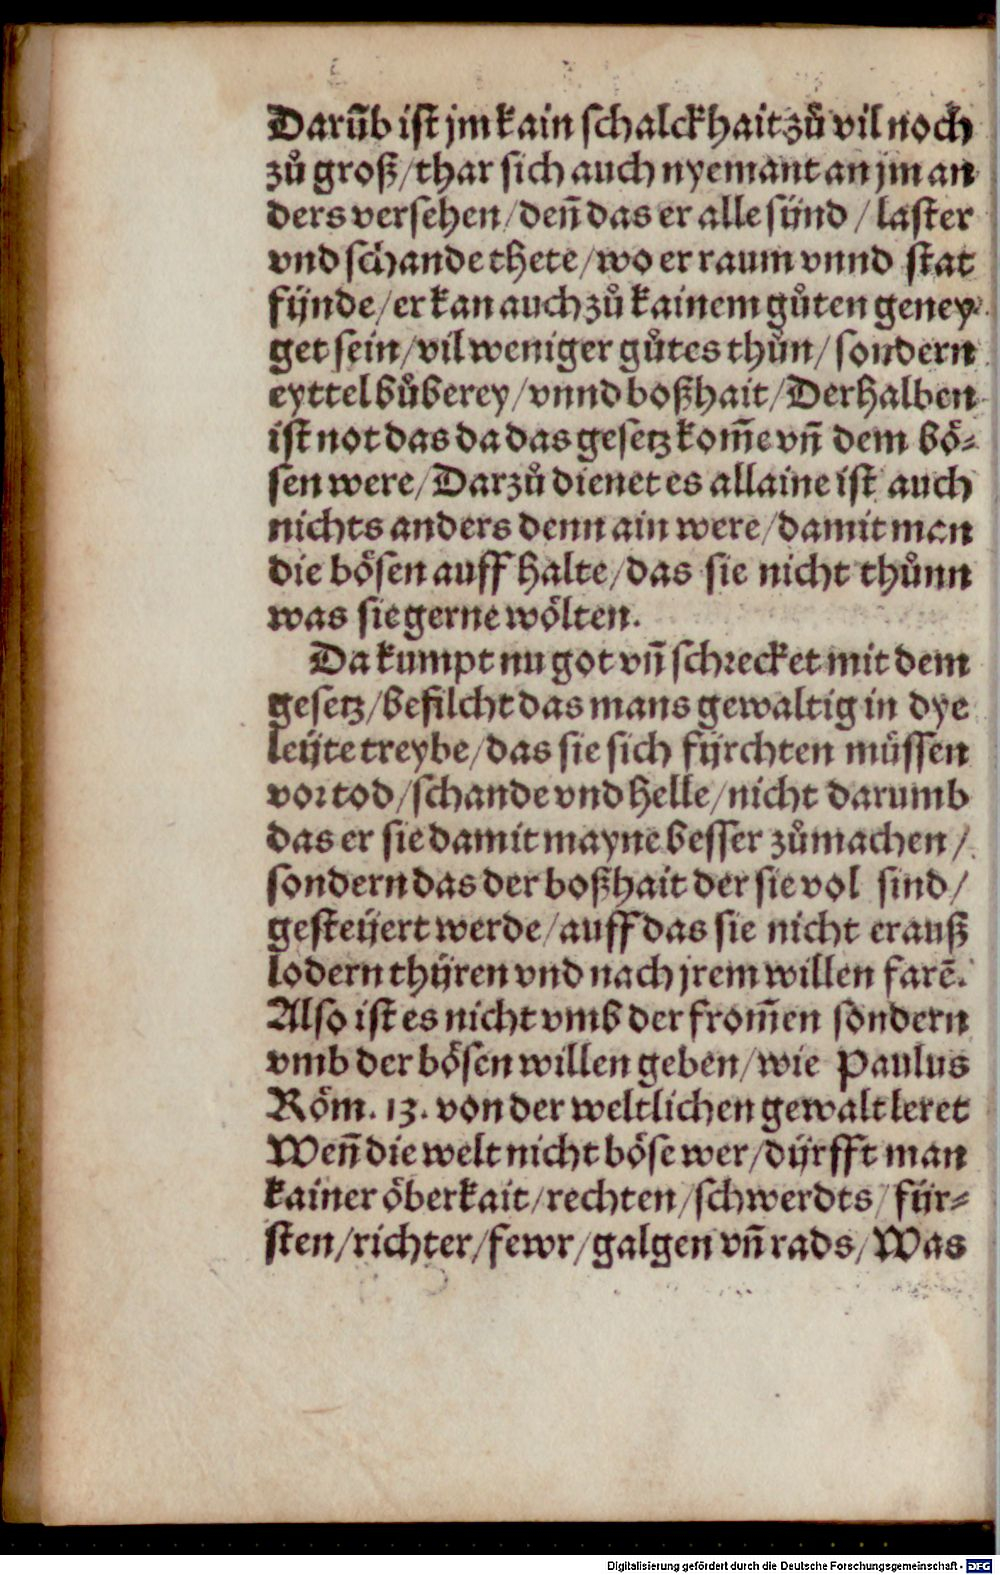 Darūb ist jm kain schalckhait zů vil noch
zů groß/thar sich auch nyemant an jm an
ders versehen/deñ das er alle sünd/laster
vnd schande thete/wo er raum vnnd stat
fünde/er kan auch zů kainem gůten geney-
get sein/vil weniger gůtes thůn/sondern
eyttel bůberey/vnnd boßhait/Derhalben
ist not das da das gesetz kom̃e vñ dem bö-
sen were/Darzů dienet es allaine ist auch
nichts anders denn ain were/damit man
die bösen auff halte/das sie nicht thůnn
was sie gerne wölten.
Da kumpt nu got vñ schrecket mit dem
gesetz/befilcht das mans gewaltig in dye
leüte treybe/das sie sich fürchten müssen
vor tod/schande vnd helle/nicht darumb
das er sie damit mayne besser zůmachen/
sondern das der boßhait der sie vol sind/
gesteüert werde/auff das sie nicht erauß
lodern thüren vnd nach jrem willen farē.
Also ist es nicht vmb der from̃en sondern
vmb der bösen willen geben/wie Paulus
Röm. 13. von der weltlichen gewalt leret
Weñ die welt nicht böse wer/dürfft man
kainer öberkait/rechten/schwerdts/für-
sten/richter/fewr/galgen vñ rads/Was
Digitalisierung gefördert durch die Deutsche Forschungsgemeinschaft - DFG